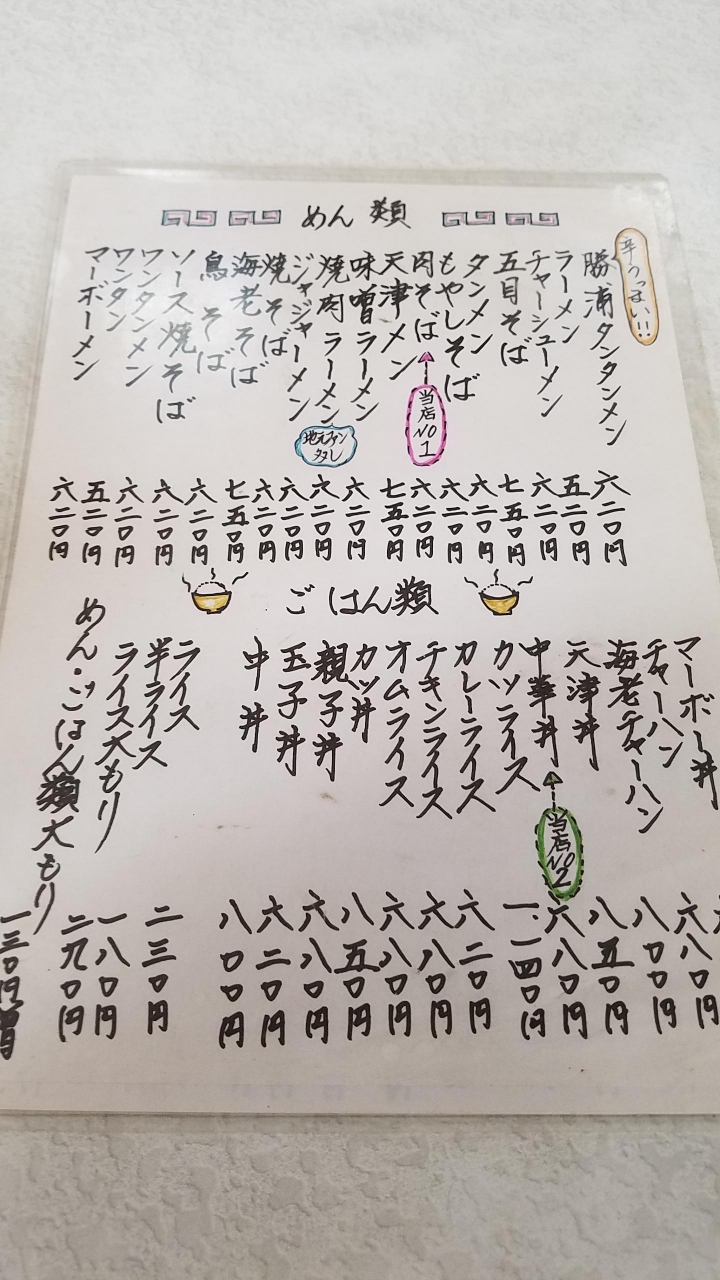 めん類
辛うっまい!!
勝浦タンタンメン 六二〇円
ラーメン 五二〇円
チャーシューメン 六二〇円
五目そば 七五〇円
タンメン 六二〇円
もやしそば 六二〇円
肉そば 六二〇円
当店NO1
天津メン 七五〇円
味噌ラーメン 六二〇円
焼肉ラーメン 六二〇円
地元ファン
タタし
ジャジャーメン 六二〇円
焼そば 六二〇円
海老そば 七五〇円
鳥そば 六二〇円
ソース焼そば 六二〇円
ワンタンメン 六二〇円
ワンタン 五二〇円
マーボーメン 六二〇円
ごはん類
マーボー丼
チャーハン 六八〇円
海老チャーハン 八〇〇円
天津丼 八五〇円
中華丼 六八〇円
当店NO2
カツライス 一、一四〇円
カレーライス 六二〇円
チキンライス 六八〇円
オムライス 六八〇円
カツ丼 八五〇円
親子丼 六八〇円
玉子丼 六二〇円
中丼 八〇〇円
ライス 二三〇円
半ライス 一八〇円
ライス大もり 二九〇円
めん・ごはん類大もり 一三〇円増